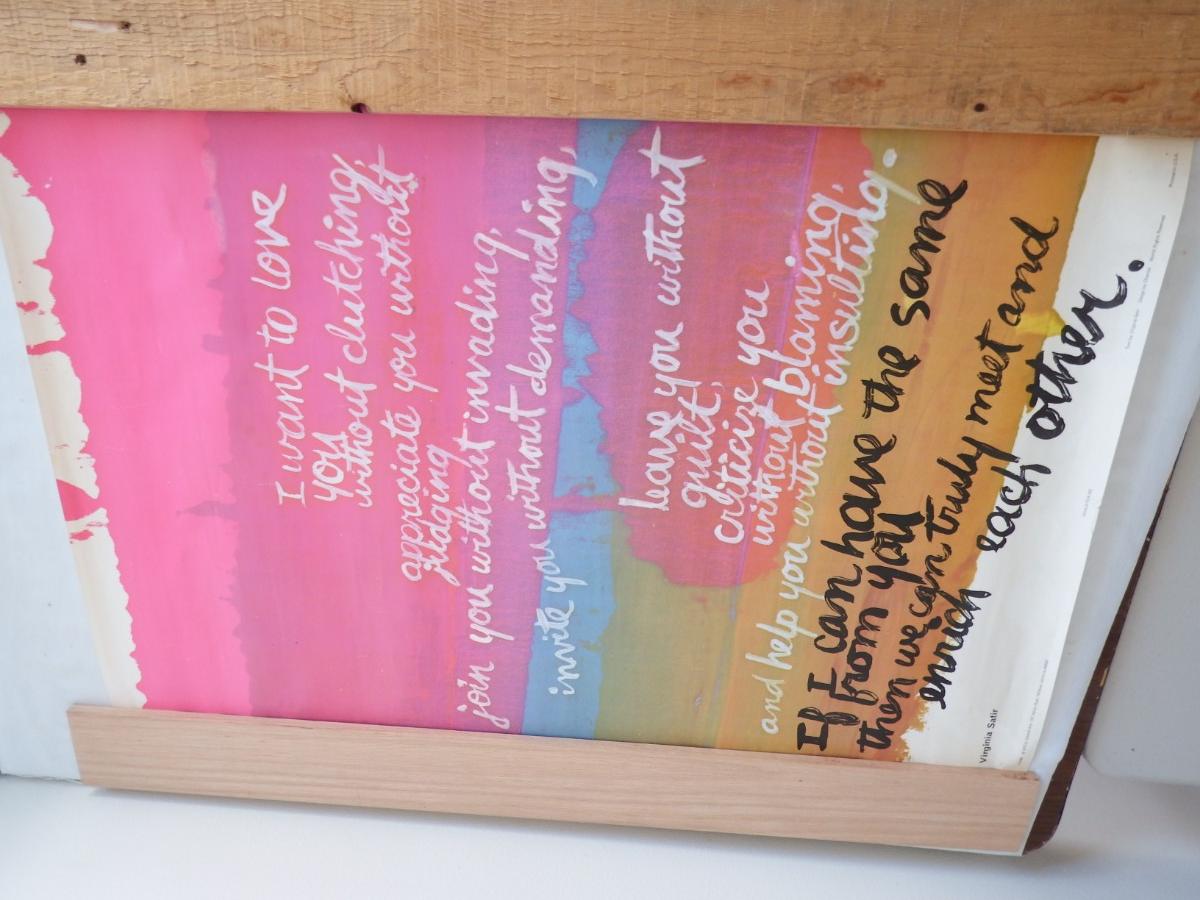 I want to love
you
without clutching,
appreciate you without
judging
join you without invading,
invite you without demanding,
leave you without
guilt,
criticize you
without blaming,
and help you without insulting.
If I can have the same
from you
then we can truly meet and
enrich each other.
Virginia Satir